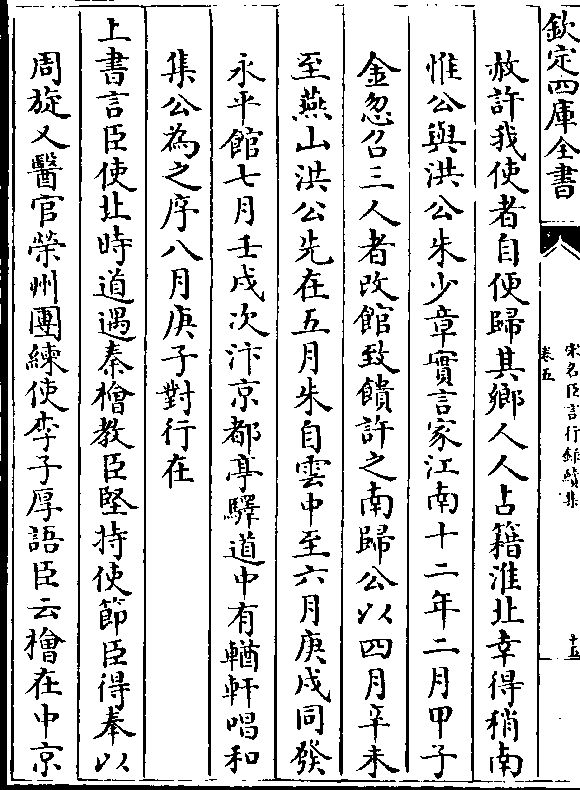 欽定四庫全書
宋名臣言行錄續集
卷五
十五
赦許我使者自便歸其鄉人人占籍淮北幸得稍南
惟公與洪公朱少章實言家江南十二年二月甲子
金忽召三人者改館致饋許之南歸公以四月辛未
至燕山洪公先在五月朱自雲中至六月庚戌同發
永平館七月壬戌次汴京都亭驛道中有輶軒唱和
集公為之序八月庚子對行在
上書言臣使北時道遇秦檜教臣堅持使節臣得奉以
周旋又醫官榮州團練使李子厚語臣云檜在中京